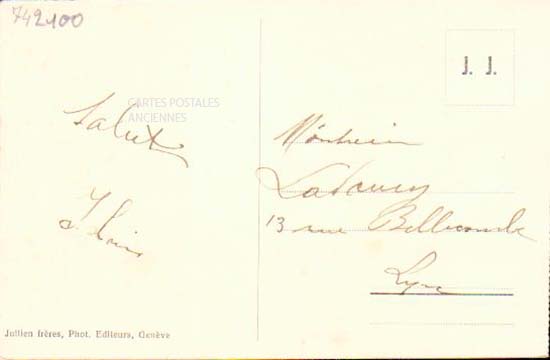 742400
CARTES POSTALES
ANCIENNES
Salut
J. J.
Monsieur
13 rue Bellecombe
Lyon
Jullien frères, Phot. Editeurs, Genève